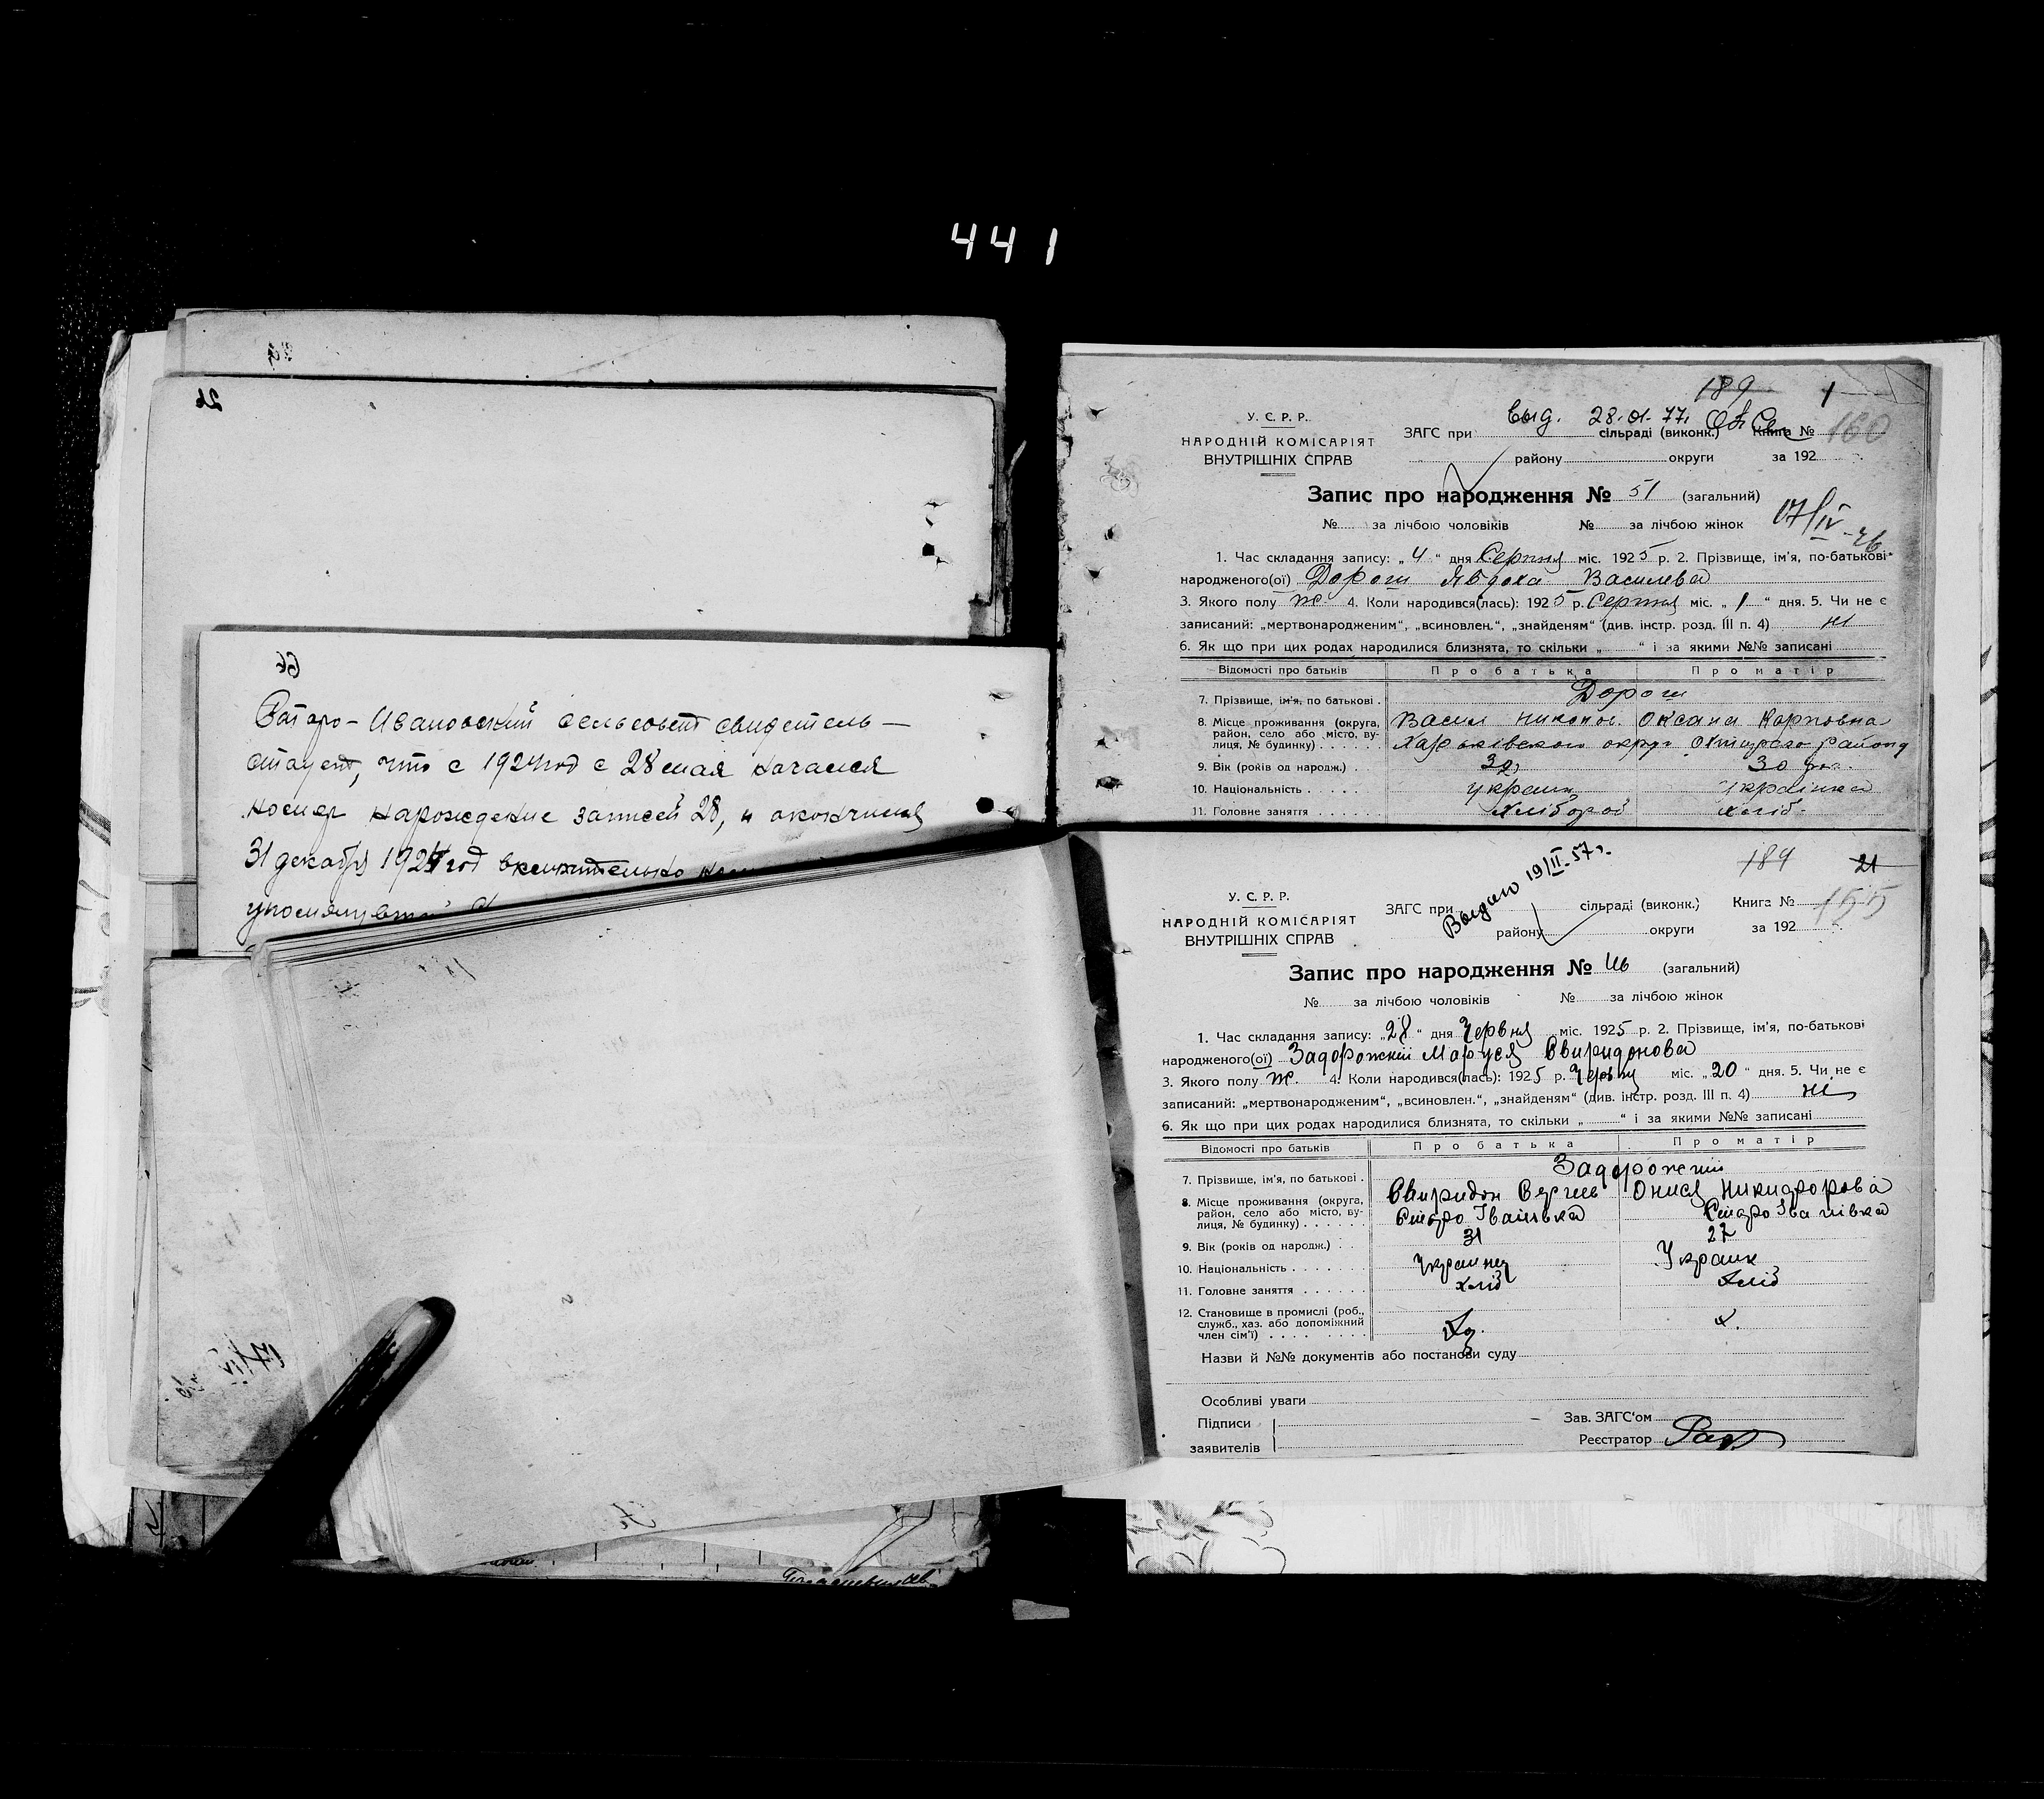 441
26
66
Старо-Ивановский сельсовет свидетель-
ствует, что с 1924 год с 28 мая начался
номер нарождение записей 28, и окончился
31 декабря 1924 год включительно
189 1
У. С. Р. Р. Выд. 28.01.77.
НАРОДНІЙ КОМІСАРІЯТ ЗАГС при сільраді (виконк.) Книга № 160
ВНУТРІШНІХ СПРАВ району округи за 192
Запис про народження № 51 (загальний)
№ за лічбою чоловіків № за лічбою жінок 17/IV-76
1. Час складання запису: „4“ дня Серпня міс. 1925 р. 2. Прізвище, ім'я, по-батькові
народженого(ої) Дорош Явдоха Василева
3. Якого полу ж. 4. Коли народився(лась): 1925 р. Серпня міс. „1“ дня. 5. Чи не є
записаний: „мертвонародженим“, „всиновлен.“, „знайденям“ (див. інстр. розд. III п. 4) ні
6. Як що при цих родах народилися близнята, то скільки „ “ і за якими №№ записані
Відомості про батьків Про батька Про матір
7. Прізвище, ім'я, по батькові . Дорош
8. Місце проживання (округа, Васил Оксана Карповна
район, село або місто, ву-
лиця, № будинку) . . . . . . Харьківского округ району
9. Вік (років од народж.) . . 32 30
10. Національність . . . . . украин украінка
11. Головне заняття . . . . . . Хлібороб хліб.
Выдано 19/II-57 г. 184 21
У. С. Р. Р.
НАРОДНІЙ КОМІСАРІЯТ ЗАГС при сільраді (виконк.) Книга № 155
ВНУТРІШНІХ СПРАВ району округи за 192
Запис про народження № 46 (загальний)
№ за лічбою чоловіків № за лічбою жінок
1. Час складання запису: „28“ дня Червня міс. 1925 р. 2. Прізвище, ім'я, по-батькові
народженого(ої) Задорожній Маруся Свиридонова
3. Якого полу ж. 4. Коли народився(лась): 1925 р. Червня міс. „20“ дня. 5. Чи не є
записаний: „мертвонародженим“, „всиновлен.“, „знайденям“ (див. інстр. розд. III п. 4) ні
6. Як що при цих родах народилися близнята, то скільки „ “ і за якими №№ записані
Відомості про батьків Про батька Про матір
7. Прізвище, ім'я, по батькові . Задорожній
8. Місце проживання (округа, Свиридон Сергіев Онися Никифорова
район, село або місто, ву-
лиця, № будинку) . . . . . . Старо Іванівка Старо Іванівка
9. Вік (років од народж.) . . 31 27
10. Національність . . . . . . . Украинец Украинк
11. Головне заняття . . . . . . хліб хліб
12. Становище в промислі (роб.,
служб., хаз. або допоміжний
член сім'ї) . . . . . . . . .
Назви й №№ документів або постанови суду
Особливі уваги
Підписи Зав. ЗАГС'ом
заявителів Реєстратор